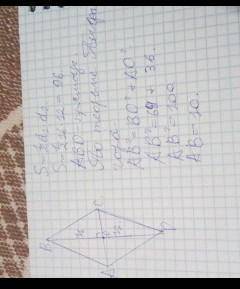 S=½d₁d₂
S=½·16·12=96
ABO-прямоуг
По теореме Пифа
гора
AB²=BO²+AO²
AB²=64+36.
AB²=100
AB=10.
B
C
A
D